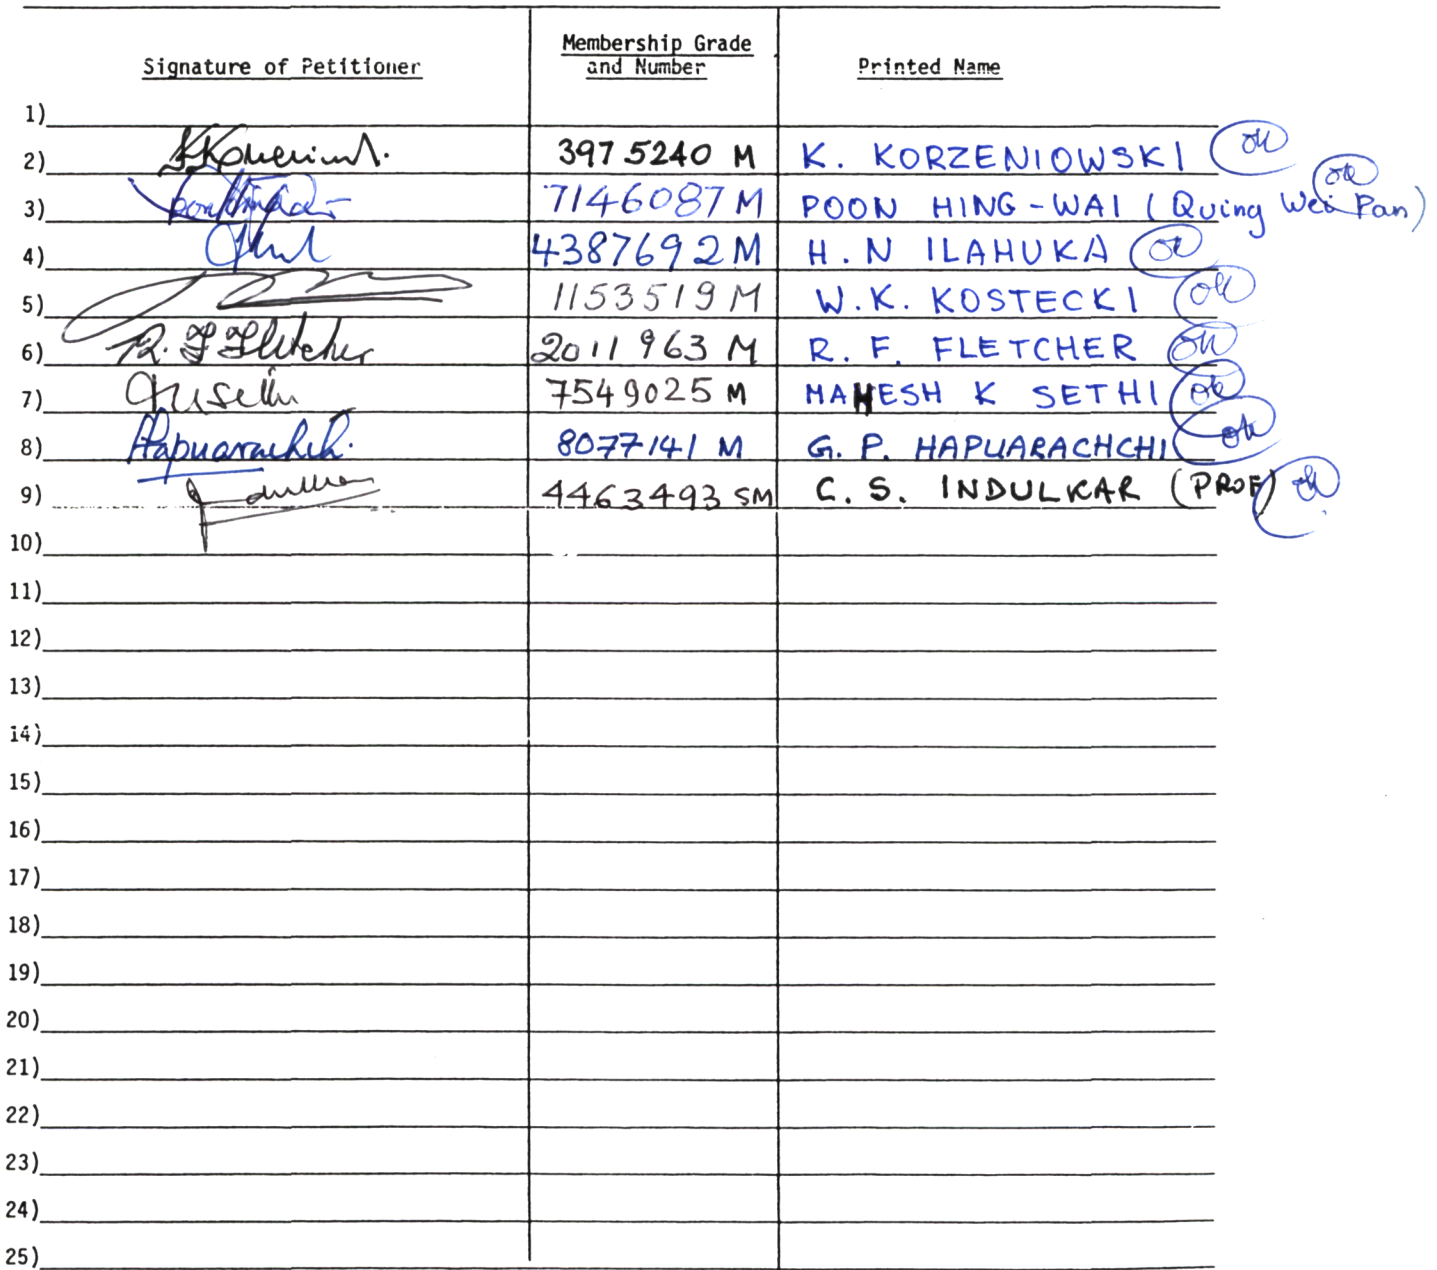 Signature of Petitioner
Membership Grade
and Number
Printed Name
1)
2) 3975240 M K. KORZENIOWSKI ok
3) 7146087 M POON HING-WAI (Quing Wei Pan) ok
4) 4387692 M H.N ILAHUKA ok
5) 1153519 M W.K. KOSTECKI ok
6) R. F Fletcher 2011963 M R. F. FLETCHER ok
7) 7549025 M MAHESH K SETHI ok
8) Hapuarachchi 8077141 M G. P. HAPUARACHCHI ok
9) 4463493 SM C. S. INDULKAR (PROF) ok
10)
11)
12)
13)
14)
15)
16)
17)
18)
19)
20)
21)
22)
23)
24)
25)